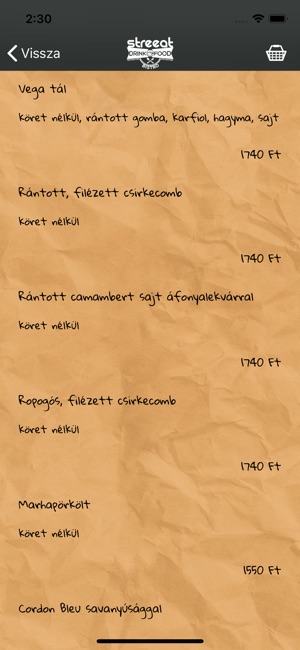 2:30
Vissza
streeat
DRINK FOOD
BISTRO
Vega tál
köret nélkül, rántott gomba, karfiol, hagyma, sajt
1740 Ft
Rántott, filézett csirkecomb
köret nélkül
1740 Ft
Rántott camambert sajt áfonyalekvárral
köret nélkül
1740 Ft
Ropogós, filézett csirkecomb
köret nélkül
1740 Ft
Marhapörkölt
köret nélkül
1550 Ft
Cordon Bleu savanyúsággal